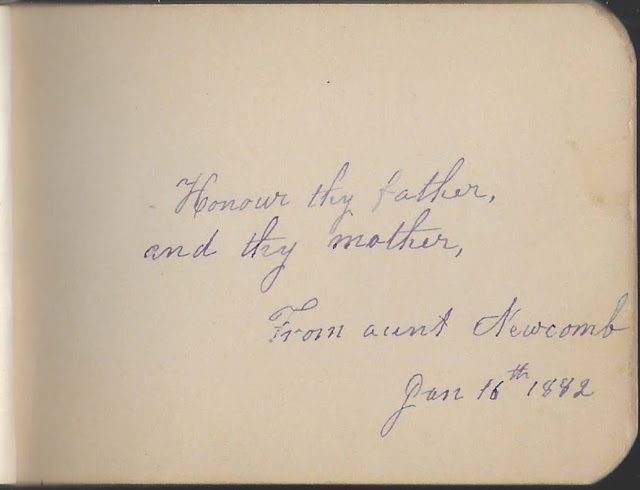 Honour thy father,
and thy mother,
From aunt Newcomb
Jan 16th 1882